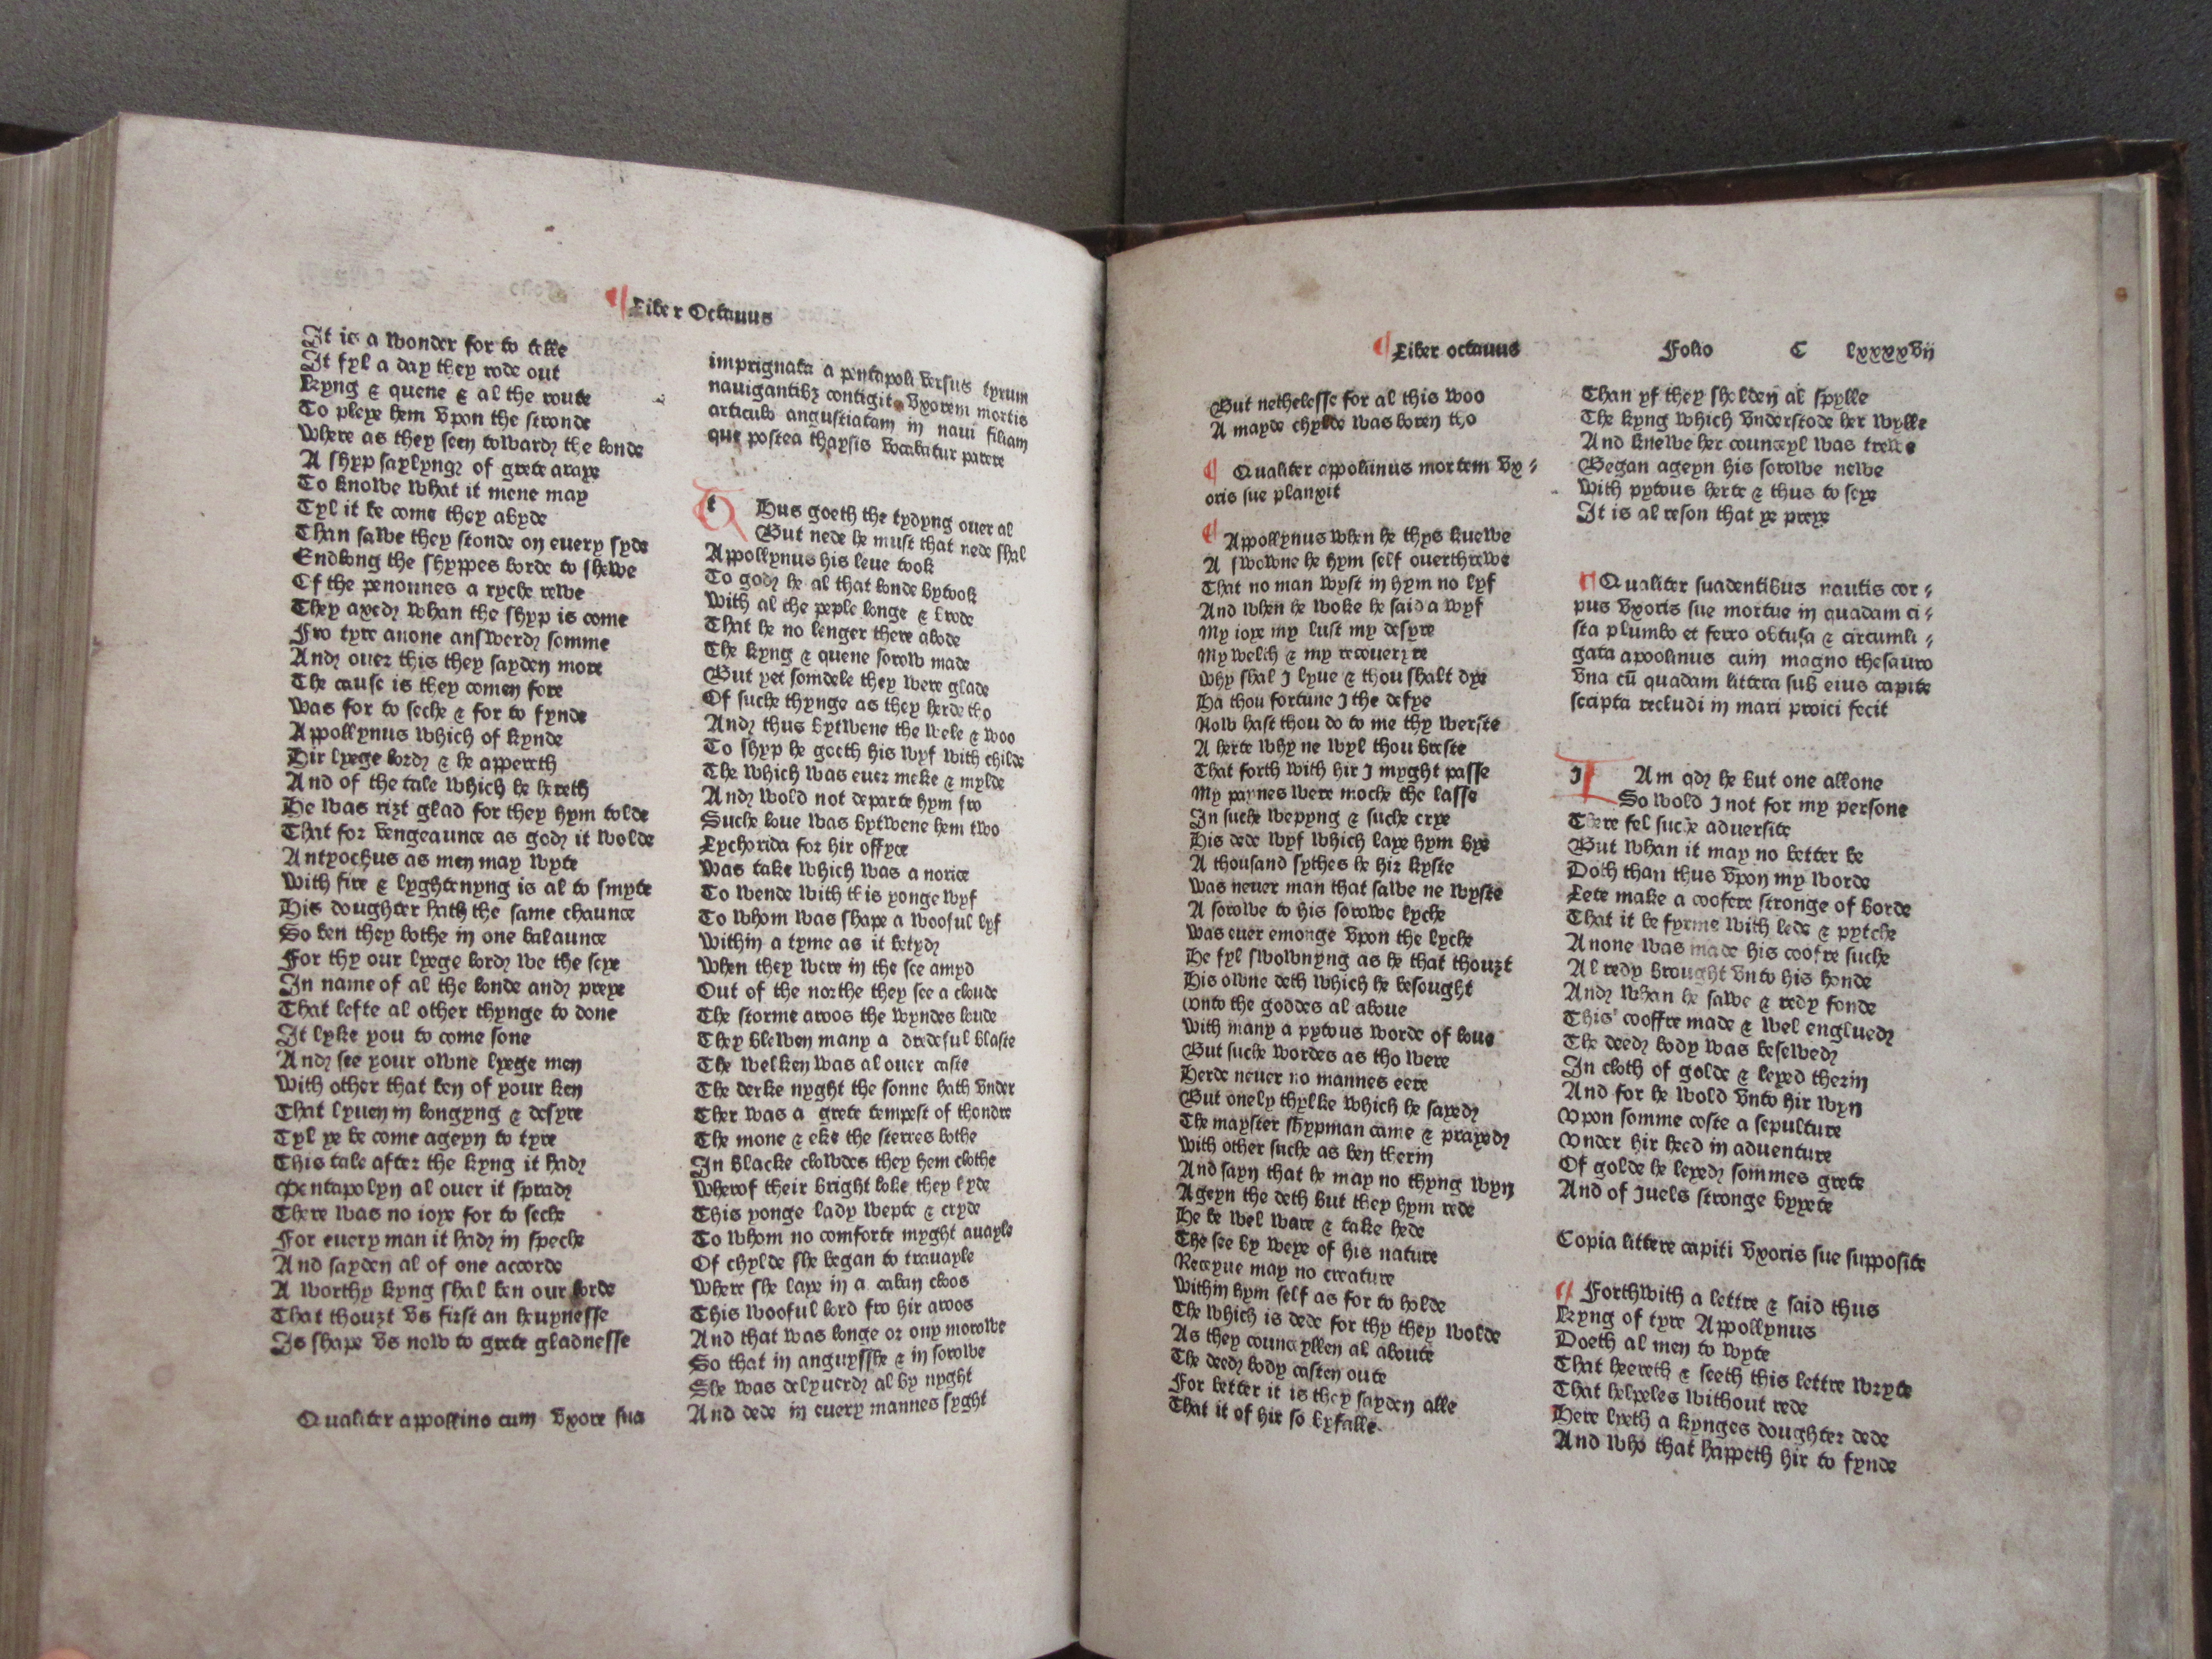 Liber Octauus
It is a wonder for to telle
It fyl a day they rode out
Kyng & quene & al the route
To pleye hem vpon the stronde
Where as they seen towardꝫ the londe
A shyp saylyngꝫ of grete araye
To knowe what it mene may
Tyl it be come they abyde
Than sawe they stonde on euery syde
Endlong the shyppes borde to shewe
Of the penounes a ryche rewe
They axedꝫ whan the shyp is come
Fro tyre anone answerdꝫ somme
Andꝫ ouer this they sayden more
The cause is they comen fore
Was for to seche & for to fynde
Appollynus which of kynde
Hir lyege lordꝫ & he appereth
And of the tale which he hereth
He was riȝt glad for they hym tolde
That for vengeaunce as godꝫ it wolde
Antyochus as men may wyte
With fire & lyghtenyng is al to smyte
His doughter hath the same chaunce
So ben they bothe in one balaunce
For thy our lyege lordꝫ we the seye
In name of al the londe andꝫ preye
That lefte al other thynge to done
It lyke you to come sone
Andꝫ see your owne lyege men
With other that ben of your ken
That lyuen in longyng & desyre
Tyl ye be come ageyn to tyre
This tale after the kyng it hadꝫ
Pentapolyn al ouer it spradꝫ
There was no ioye for to seche
For euery man it hadꝫ in speche
And sayden al of one accorde
A worthy kyng shal ben our lorde
That thouȝt vs first an heuynesse
Is shape vs now to grete gladnesse
Qualiter appollino cum vxore sua
imprignata a pentapoli versus tyrum
nauigantibꝫ contigit vxorem mortis
articulo angustiatam in naui filiam
que postea thaysis vocabatur parere
t Hus goeth the tydyng ouer al
But nede he must that nede shal
Appollynus his leue took
To godꝫ he al that londe bytook
With al the peple longe & brode
That he no lenger there abode
The kyng & quene sorow made
But yet somdele they were glade
Of suche thynge as they herde tho
Andꝫ thus bytwene the wele & woo
To shyp he goeth his wyf with childe
The which was euer meke & mylde
Andꝫ wold not departe hym fro
Suche loue was bytwene hem two
Lychorida for hir offyce
Was take which was a norice
To wende with this yonge wyf
To whom was shape a wooful lyf
Within a tyme as it betydꝫ
When they were in the see amyd
Out of the northe they see a cloude
The storme aroos the wyndes loude
They blewen many a dredeful blaste
The welken was al ouer caste
The derke nyght the sonne hath vnder
Ther was a grete tempest of thondre
The mone & eke the sterres bothe
In blacke clowdes they hem clothe
Wherof their bright loke they hyde
This yonge lady wepte & cryde
To whom no comforte myght auayle
Of chylde she began to trauayle
Where she laye in a caban cloos
This wooful lord fro hir aroos
And that was longe or ony morowe
So that in anguysshe & in sorowe
She was delyuerdꝫ al by nyght
And dede in euery mannes syght
Liber octauus Folio C lxxxxvij
But nethelesse for al this woo
A mayde chylde was boren tho
Qualiter appollinus mortem vx-
oris sue planxit
Appollynus when he thys knewe
A swowne he hym self ouerthrewe
That no man wyst in hym no lyf
And when he woke he said a wyf
My ioye my lust my desyre
My welth & my recoueryre
Why shal I lyue & thou shalt dye
Ha thou fortune I the defye
Now hast thou do to me thy werste
A herte why ne wyl thou breste
That forth with hir I myght passe
My paynes were moche the lasse
In suche wepyng & suche crye
His dede wyf which laye hym bye
A thousand sythes he hir kyste
Was neuer man that sawe ne wyste
A sorowe to his sorowe lyche
Was euer emonge vpon the lyche
He fyl swownyng as he that thouȝt
His owne deth which he besought
Vnto the goddes al aboue
With many a pytous worde of loue
But suche wordes as tho were
Herde neuer no mannes eere
But onely thylke which he sayedꝫ
The mayster shypman came & prayedꝫ
With other suche as ben therin
And sayn that he may no thyng wyn
Ageyn the deth but they hym rede
He be wel ware & take hede
The see by weye of his nature
Receyue may no creature
Within hym self as for to holde
The which is dede for thy they wolde
As they counceyllen al aboute
The deedꝫ body casten oute
For better it is they sayden alle
That it of hir so byfalle
Than yf they sholden al spylle
The kyng which vnderstode her wylle
And knewe her counceyl was trewe
Began ageyn his sorowe newe
With pytous herte & thus to seye
It is al reson that ye preye
Qualiter suadentibus nautis cor-
pus vxoris sue mortue in quadam ci-
sta plumbo et ferro obtusa & circumli-
gata apoolinus cum magno thesauro
vna cū quadam littera sub eius capite
scripta recludi in mari proici fecit
I Am qdꝫ he but one allone
So wold I not for my persone
There fel suche aduersite
But whan it may no better be
Doth than thus vpon my worde
Lete make a coofere stronge of borde
That it be fyrme with lede & pytche
Anone was made his coofre suche
Al redy brought vnto his honde
Andꝫ whan he sawe & redy fonde
This cooffre made & wel engluedꝫ
The deedꝫ body was besewedꝫ
In cloth of golde & leyed therin
And for he wold vnto hir wyn
Vpon somme coste a sepulture
Vnder hir heed in aduenture
Of golde he leyedꝫ sommes grete
And of juels stronge byyete
Copia littere capiti vxoris sue supposite
Forthwith a lettre & said thus
Kyng of tyre Appollynus
Doeth al men to wyte
That heereth & seeth this lettre wryte
That helpeles without rede
Here lyeth a kynges doughter dede
And who that happeth hir to fynde